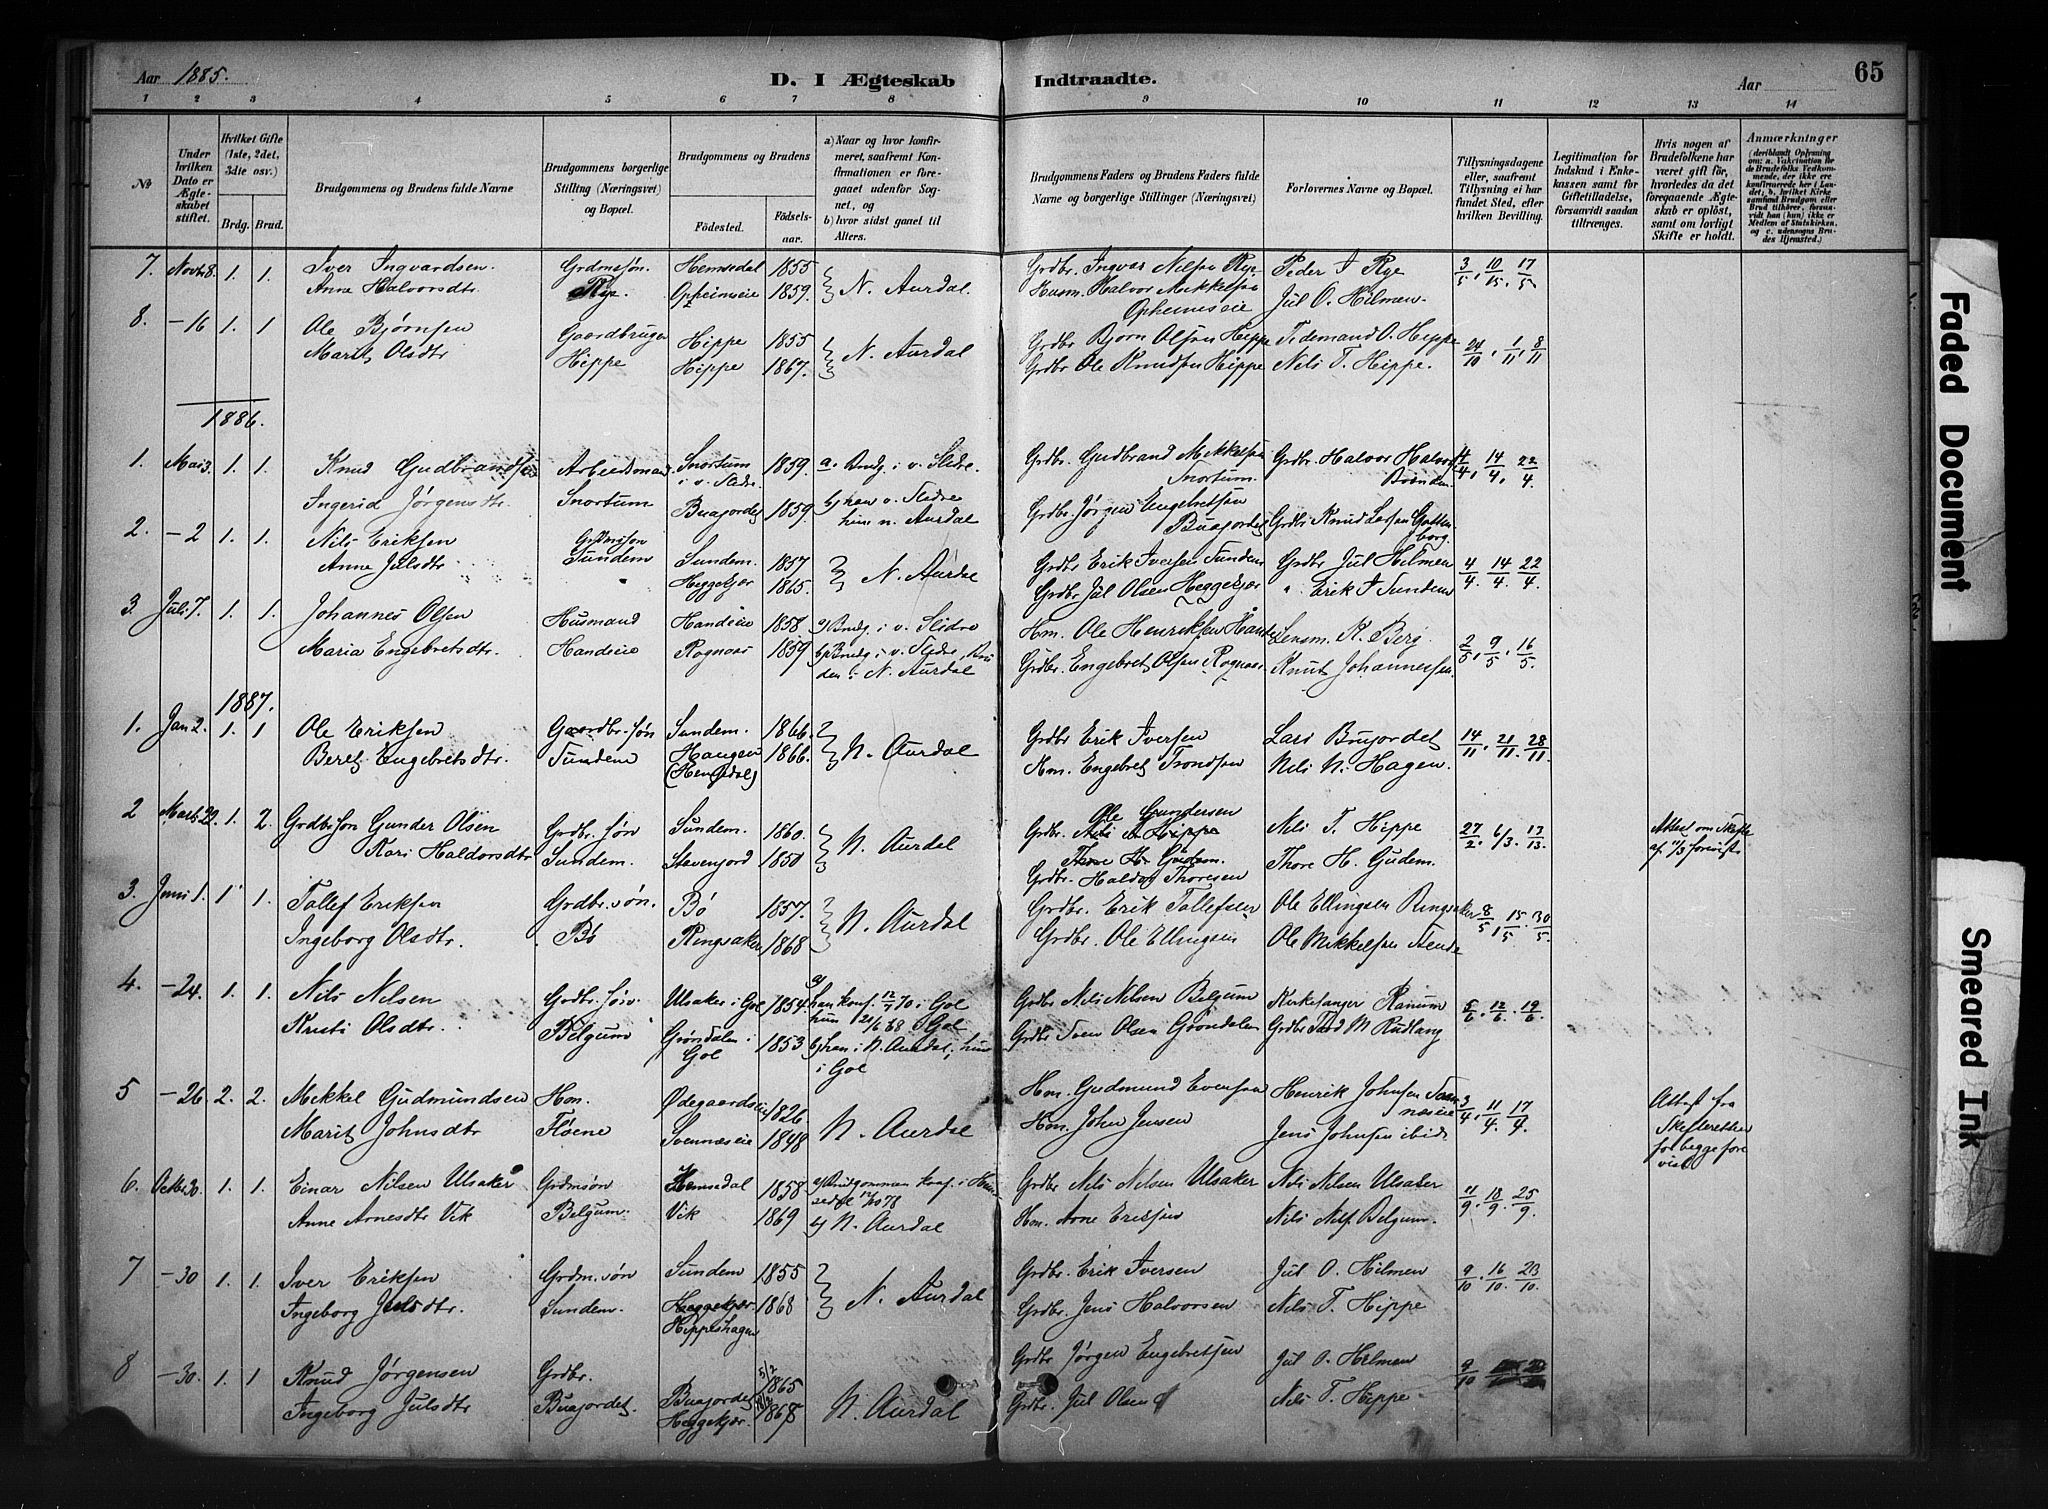 Aar 1885.
D. I Ægteskab Indtraadte.
Aar
65
1 2 3 4 5 6 7 8 9 10 11 12 13 14
No
Under hvilken Dato er Ægteskabet stiftet.
Hvilket Gifte (1ste, 2det, 3die osv.)
Brdg. Brud.
Brudgommens og Brudens fulde Navne
Brudgommens borgerlige Stilling (Næringsvei) og Bopæl.
Brudgommens og Brudens
Fødested.
Fødselsaar.
a) Naar og hvor konfirmeret, saafremt Konfirmationen er foregaaet udenfor Sognet, og
b) hvor sidst ganet til Alters.
Brudgommens Faders og Brudens Faders fulde Navne og borgerlige Stillinger (Næringsvei)
Forlovernes Navne og Bopæl.
Tillysningsdagene eller, saafremt Tillysning ei har fundet Sted, efter hvilken Bevilling.
Legitimation for Indskud i Enkekassen samt for Giftetilladelse, forsaavidt saadan tiltrænges.
Hvis nogen af Brudefolkene har været gift før, hvorledes da det foregaaende Ægteskab er opløst, samt om lovligt Skifte er holdt.
Anmærkninger (deriblandt Oplysning om: a. Vakcination for de Brudefolks Vedkommende, der ikke ere konfirmerede her i Landet; b. hvilket Kirkesamfund Brudgom eller Brud tilhører, forsaavidt han (hun) ikke er Medlem af Statskirken, og c. udensogns Brudes Hjemsted.)
7. Novbr 8. 1. 1. Iver Ingvardsen. Grdmsøn. Hemsedal 1855 Grdbr. Ingvar Nilsen Rye Peder I Rye 3/5, 10/15, 17/5
Anne Halvorsdtr Rye. Opheimseie 1859. N. Aurdal. Husm. Halvor Mikkelsen Opheimseie Jul O. Hilmen.
8. - 16 1. 1 Ole Bjørnsen Gaardbruger Hippe 1855 Grdbr Bjørn Olsen Hippe Tidemand O. Hippe 24/10, 1/11, 8/11
Marit Olsdtr Hippe Hippe 1867. N. Aurdal Grdbr Ole Knudsen Hippe Nils T. Hippe.
1886.
1. Mai 3. 1. 1. Knud Gudbrandsen Arbeidsmand Snortum i v. Slidre. 1859. a. Brdg. i v. Slidre. Grdbr. Gudbrand Mikkelsen Snortum. Grdbr. Halvor Halvors 4/4, 14/4, 22/4
Ingerid Jørgensdtr. Snortum Buajordet 1859. b) han v. Slidre hun n. Aurdal Grdbr. Jørgen Engebretsen Buajordet Grdbr Knud Larsen
2. - 2 1. 1. Nils Eriksen Grdmsøn Sundem. 1857 Grdbr Erik Iversen Sundem Grdbr Jul Hilmen 4/4. 14/4. 22/4
Anne Julsdtr Sundem Heggekjær 1865. N. Aurdal Grdbr Jul Olsen Heggekjær " Erik I Sundem
3. Juli 7. 1. 1. Johannes Olsen Husmand Handeie 1858. a) Brdg. i v. Slidre Hm. Ole Henriksen Hande Lensm. K. Berg. 2/5, 9/5, 16/5
Maria Engebretsdtr. Handeie Rognaas 1859 b) Brdg i v. Slidre, Bruden i N. Aurdal Grdbr. Engebret Olsen Rognaas Knut Johannessen.
1887.
1. Jan 2. 1. 1 Ole Eriksen Gaardbr.søn Sundem. 1866. Grdbr Erik Iversen Lars Buajordet 14/11. 21/11. 28/11
Beret Engebretsdtr. Sundem Haugen (Hemsedal) 1866. N. Aurdal Hm. Engebret Trondsen Nils N. Hagen.
2 Marts 22. 1. 2. Grdbrsøn Gunder Olsen Grdbr. søn Sundem. 1860. Grdbr. Ole Gundersen Nils T. Hippe 27/2 6/3. 13/13. Attest om Skifte af 11/3 forevist
Kari Haldorsdtr Sundem. Stavenjord 1850 N. Aurdal Grdbr. Haldor Thoresen Thore H. Gudem.
3. Juni 1. 1. 1. Tollef Eriksen Grdbr.søn. Bø 1857. Grdbr. Erik Tollefsen Ole Ellingsen Ringsaker 8/5. 15/5. 30/5.
Ingeborg Olsdtr. Bø Ringsaker 1868 N. Aurdal Grdbr. Ole Ellingsen Ole Mikkelsen
4. - 24. 1. 1. Nils Nilsen Grdbr. søn Ulsaker i Gol 1854. a) han konf. 12/7 70 i Gol Grdbr Nils Nilsen Belgum Kirkesanger Ranum 5/6. 12/6. 19/6.
Kristi Olsdtr. Belgum Grøndalen i Gol 1853 hun 21/6 68 i Gol b) han i N. Aurdal, hun i Gol Grdbr Sven Olsen Grøndalen Grdbr Tord M Rudlang
5 - 26. 2. 2. Mekkel Gudmundsen Hm. Ødegaardseie 1826 Hm. Gudmund Evensen Henrik Johnsen 3/4. 11/4. 17/4. Attest fra Skifteretten for begge forevist
Marit Johnsdtr Fløene Svennæseie 1848 N. Aurdal Hm. John Jensen Jens Johnsen ibid.
6. Octbr 30. 1. 1. Einar Nilsen Ulsaker Grdmsøn Hemsedal 1858 a) Brudgommen konf. i Hemsedal 78 Grdbr Nils Nilsen Ulsaker Nils Nilsen Ulsaker 11/9. 18/9. 25/9.
Anne Arnesdtr Vik Belgum. Vik 1869 b) N. Aurdal Hm. Arne Eriksen Nils Nilsen Belgum.
7 - 30 1. 1. Iver Eriksen Grdm.søn Sundem 1855 Grdbr. Erik Iversen Jul O. Hilmen 9/10. 16/10. 23/10.
Ingeborg Julsdtr. Sundem. Heggekjær Hippeshagen 1868 N. Aurdal Grdbr. Jens Halvorsen Nils T. Hippe
8 - 30. 1. 1 Knud Jørgensen Grdbr. Buajordet 5/2 1865 Grdbr Jørgen Engebretsen Jul O. Hilmen 9/10
Ingeborg Julsdtr Buajordet. Heggekjær 1868 N. Aurdal Grdbr. Jul Olsen Nils T. Hippe
Faded Document
Smeared Ink